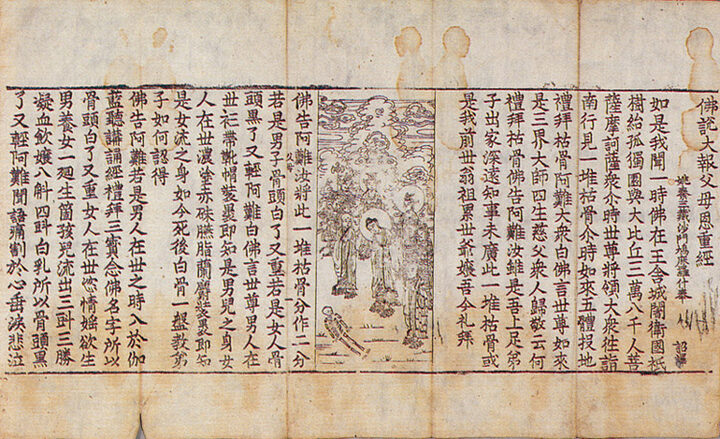 佛說大報父母恩重經
姚秦三藏沙門鳩摩羅什奉 詔譯
如是我聞一時佛在王舍城闍衛國祇
樹給孤獨園與大比丘三萬八千人菩
薩摩訶薩衆尒時世尊將領大衆徃詣
南行見一堆枯骨尒時如來五體投地
禮拜枯骨阿難大衆白佛言世尊如來
是三界大師四生慈父衆人歸敬云何
禮拜枯骨佛告阿難汝雖是吾上足弟
子出家深遠知事未廣此一堆枯骨或
是我前世翁祖累世爺孃吾今礼拜
佛告阿難汝將此一堆枯骨分作二分
若是男子骨頭白了又重若是女人骨
頭黑了又輕阿難白佛言世尊男人在
世衫帶靴帽裝裹即知是男兒之身女
人在世濃塗赤硃臙脂蘭麝裝裹即知
是女流之身如今死後白骨一盤教弟
子如何認得
佛告阿難若是男人在世之時入於伽
藍聽講誦經禮拜三寶念佛名字所以
骨頭白了又重女人在世恣情婬欲生
男養女一廻生箇孩兒流出三㪷三勝
凝血飲孃八斛四㪷白乳所以骨頭黑
了又輕阿難聞語痛割於心垂淚悲泣